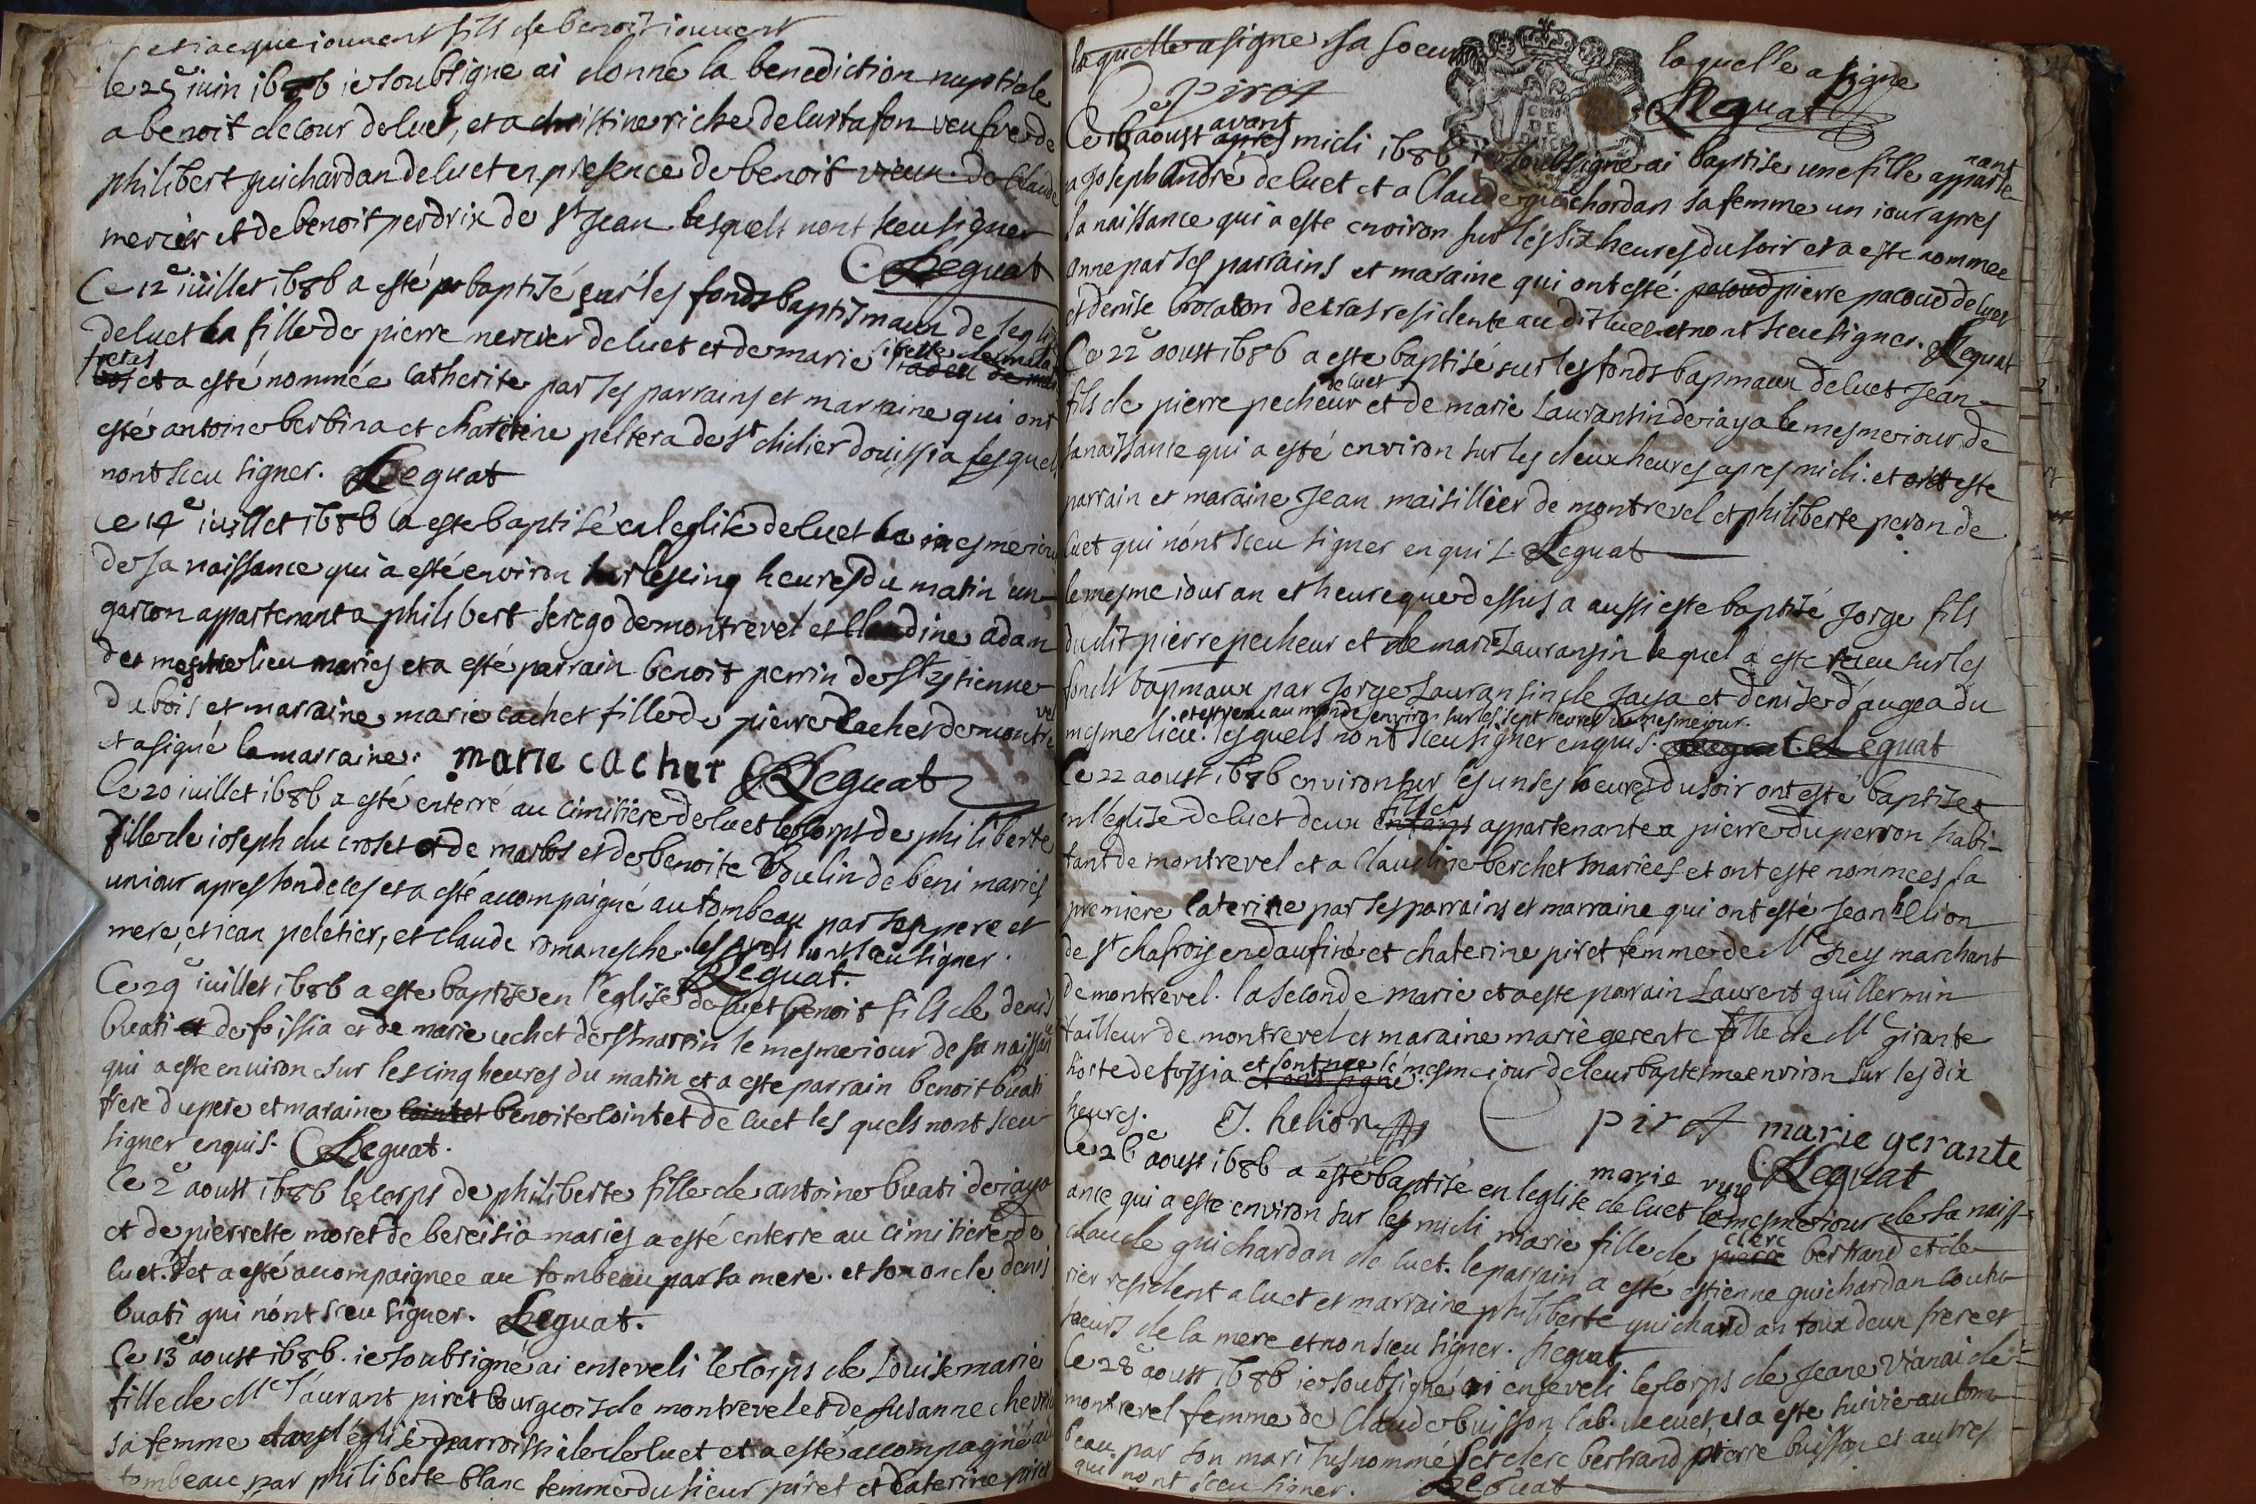 et iacque iouuent fils de benoit iouuent
le 25e iuin 1686 ie soubsigne ai donné la benediction nuptiale
a benoit decour de luet, et a christine riche de lurtafon veufve de
philibert guichardan de luet en presence de benoit vieux de Claude
mercier et de benoit perdrix de st Jean lesquels nont sceu signer
Leguat
Ce 12e iuillet 1686 a esté baptisé sur les fonds baptismaux de leglise
de luet la fille de pierre mercier de luet et de marie
et a esté nommée Catherite par ses parrains et marraine qui ont
esté antoine berbina et chaterine peltera de st didier douissia lesquels
nont sceu signer. Leguat
Ce 14e iuillet 1686 a este baptisé en leglise de luet le mesme iour
de sa naissance qui a esté environ sur les cinq heures du matin un
garcon appartenant a philibert serego de montrevel et Claudine adam
de mesme lieu mariés et a esté parrain benoit perrin de st estienne
du bois et marraine marie cachet fille de pierre Cachet de montrevel
et a signé la marraine. marie cachet Leguat
Ce 20 iuillet 1686 a esté enterré au cimitière de luet le corps de philiberte
fille de ioseph du croset et de marbos et de benoite Voulin de beni mariés
un iour apres son deces et a esté accompaigné au tombeau par ses pere et
mere, et iean peletier, et claude romanesche. lesquels nont sceu signer.
Leguat.
Ce 29e iuillet 1686 a este baptise en l'eglise de luet benoit fils de denis
buati de foissia et de marie uchet de st martin le mesme iour de sa naissance
qui a este environ sur les cinq heures du matin et a este parrain benoit buati
frere du pere et maraine cointet benoite cointet de luet les quels nont sceu
signer enquis. Leguat.
Ce 2e aoust 1686 le corps de philiberte fille de antoine buati de iaya
et de pierrette moret de bereisia mariés a esté enterre au cimitiere de
luet. et a esté accompaignee au tombeau par sa mere. et son oncle denis
buati qui nónt sceu signer. Leguat.
Ce 13e aoust 1686. ie soubsigné ai enseveli le corps de Louise marie
fille de Me Laurant piret bourgeois de montrevel et de susanne
sa femme dans l'église parroissiale de luet et a esté accompagné au
tombeau par philiberte blanc femme du sieur piret et Caterine piret
laquelle a signe sa soeur laquelle a signe
Piret Leguat
Ce 16e aoust apres avant midi 1686 ie soubsigné ai baptise une fille appartenant
a Joseph André de luet et a Claude guichardan sa femme un iour apres
sa naissance qui a este environ sur les six heures du soir et a este nommee
anne par ses parrains et maraine qui ont esté. pacoud pierre pacoud de luet
et denise brocaton de cras residente au dit luet et nont sceu signer. Leguat
Ce 22e aoust 1686 a este baptisé sur les fonds bapmaux de luet Jean
fils de pierre pecheur de luet et de marie Laurantin de iaya le mesme iour de
sa naissance qui a esté environ sur les deux heures apres midi. et ont este
parrain et maraine Jean maisillier de montrevel et philiberte peron de
luet qui nónt sceu signer enquis. Leguat
le mesme iour an et heure que dessus a aussi este baptisé Jorge fils
du dit pierre pecheur et de marie Lauransin le quel a este receu sur les
fonds bapmaux par Jorge Lauransin de Jaya et denise d'augea du
et est venu au monde environ sur les sept heures du mesme iour.
mesme lieu. lesquels nont sceu signer enquis. Leguat
Ce 22 aoust 1686 environ sur les unses heures du soir ont esté baptisees
en l'eglise de luet deux enfans filles appartenante a pierre duperron habi-
tant de montrevel et a Claudine berchet mariees et ont este nommees la
premiere Caterine par ses parrains et marraine qui ont esté Jean hElion
de st chafroy en daufiné et chaterine piret femme de Mr Grey marchant
de montrevel. la seconde marie et a este parrain Laurent guillermin
tailleur de montrevel et maraine marie gerente fille de Me girante
hoste de fossia et sont nee le mesme iour de leur baptesme environ sur les dix
heures. J. helion piret marie gerante
Leguat
marie vive
Ce 26e aoust 1686 a ésté baptisé en leglise de luet le mesme iour de sa naiss-
ance qui a este environ sur les midi marie fille de pierre clerc bertrand et de
claude guichardan de luet. le parrain a esté estienne guichardan coutu-
rier resident a luet et marraine philiberte guichardan toux deux frere et
soeurs de la mere et non sceu signer. Leguat
Ce 28e aoust 1686 ie soubsigné ai enseveli le corps de Jeane Vianai de
montrevel femme de Claude buisson lab. de luet, et a este suivie au tom-
beau par son mari susnommé, et clerc bertrand, pierre buisson et autres
qui nont sceu signer. Leguat